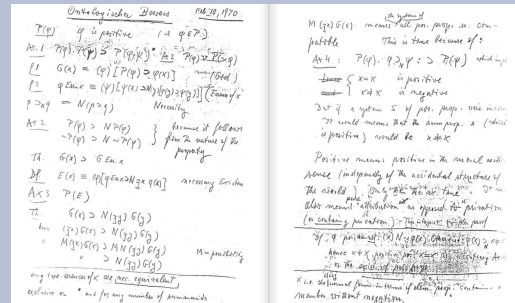 Ontologischer Beweis Feb. 10, 1970
P(φ) φ is positive (⇔ φ ∈ P.)
Ax. 1 P(φ).P(ψ) ⊃ P(φ.ψ) Ax 2 P(φ) ∨ P(~φ)
P1 G(x) ≡ (φ)[P(φ) ⊃ φ(x)] (God)
P2 φ Ess. x ≡ (ψ)[ψ(x) ⊃ N(y)[φ(y) ⊃ ψ(y)]] (Essence of x)
p ⊃N q = N(p ⊃ q) Necessity
Ax 2 P(φ) ⊃ NP(φ) } because it follows
~P(φ) ⊃ N~P(φ) } from the nature of the
property
Th. G(x) ⊃ G Ess. x
Df. E(x) ≡ (φ)[φ Ess x ⊃ N(∃x) φ(x)] necessary Existence
Ax 3 P(E)
Th. G(x) ⊃ N(∃y) G(y)
hence (∃x)G(x) ⊃ N(∃y) G(y)
" M(∃x)G(x) ⊃ MN(∃y) G(y)
" ⊃ N(∃y) G(y) M = possibility
any two essences of x are nec. equivalent
exclusive or * and for any number of summands
M(∃x)G(x) means the system of all pos. props. is com-
patible This is true because of:
Ax 4: P(φ). φ ⊃N ψ: ⊃ P(ψ) which
x = x is positive
x ≠ x is negative
But if a system S of pos. props. were
It would mean that the sum prop. s (which
is positive) would be x ≠ x
Positive means positive in the moral aesth.
sense (independently of the accidental structure of
the world). Only then the ax. true. It
also means "attribution" as opposed to "privation
(or containing privation)". This interpret. simpler proof
If φ
hence x ≠ x positive
or the
x i.e. the normal form in terms of elem. prop. contains a
member without negation.